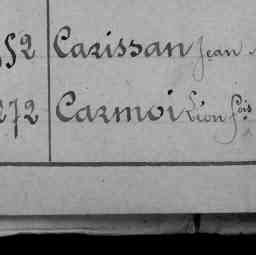 52 Carissan Jean
272 Carmoi Léon fois